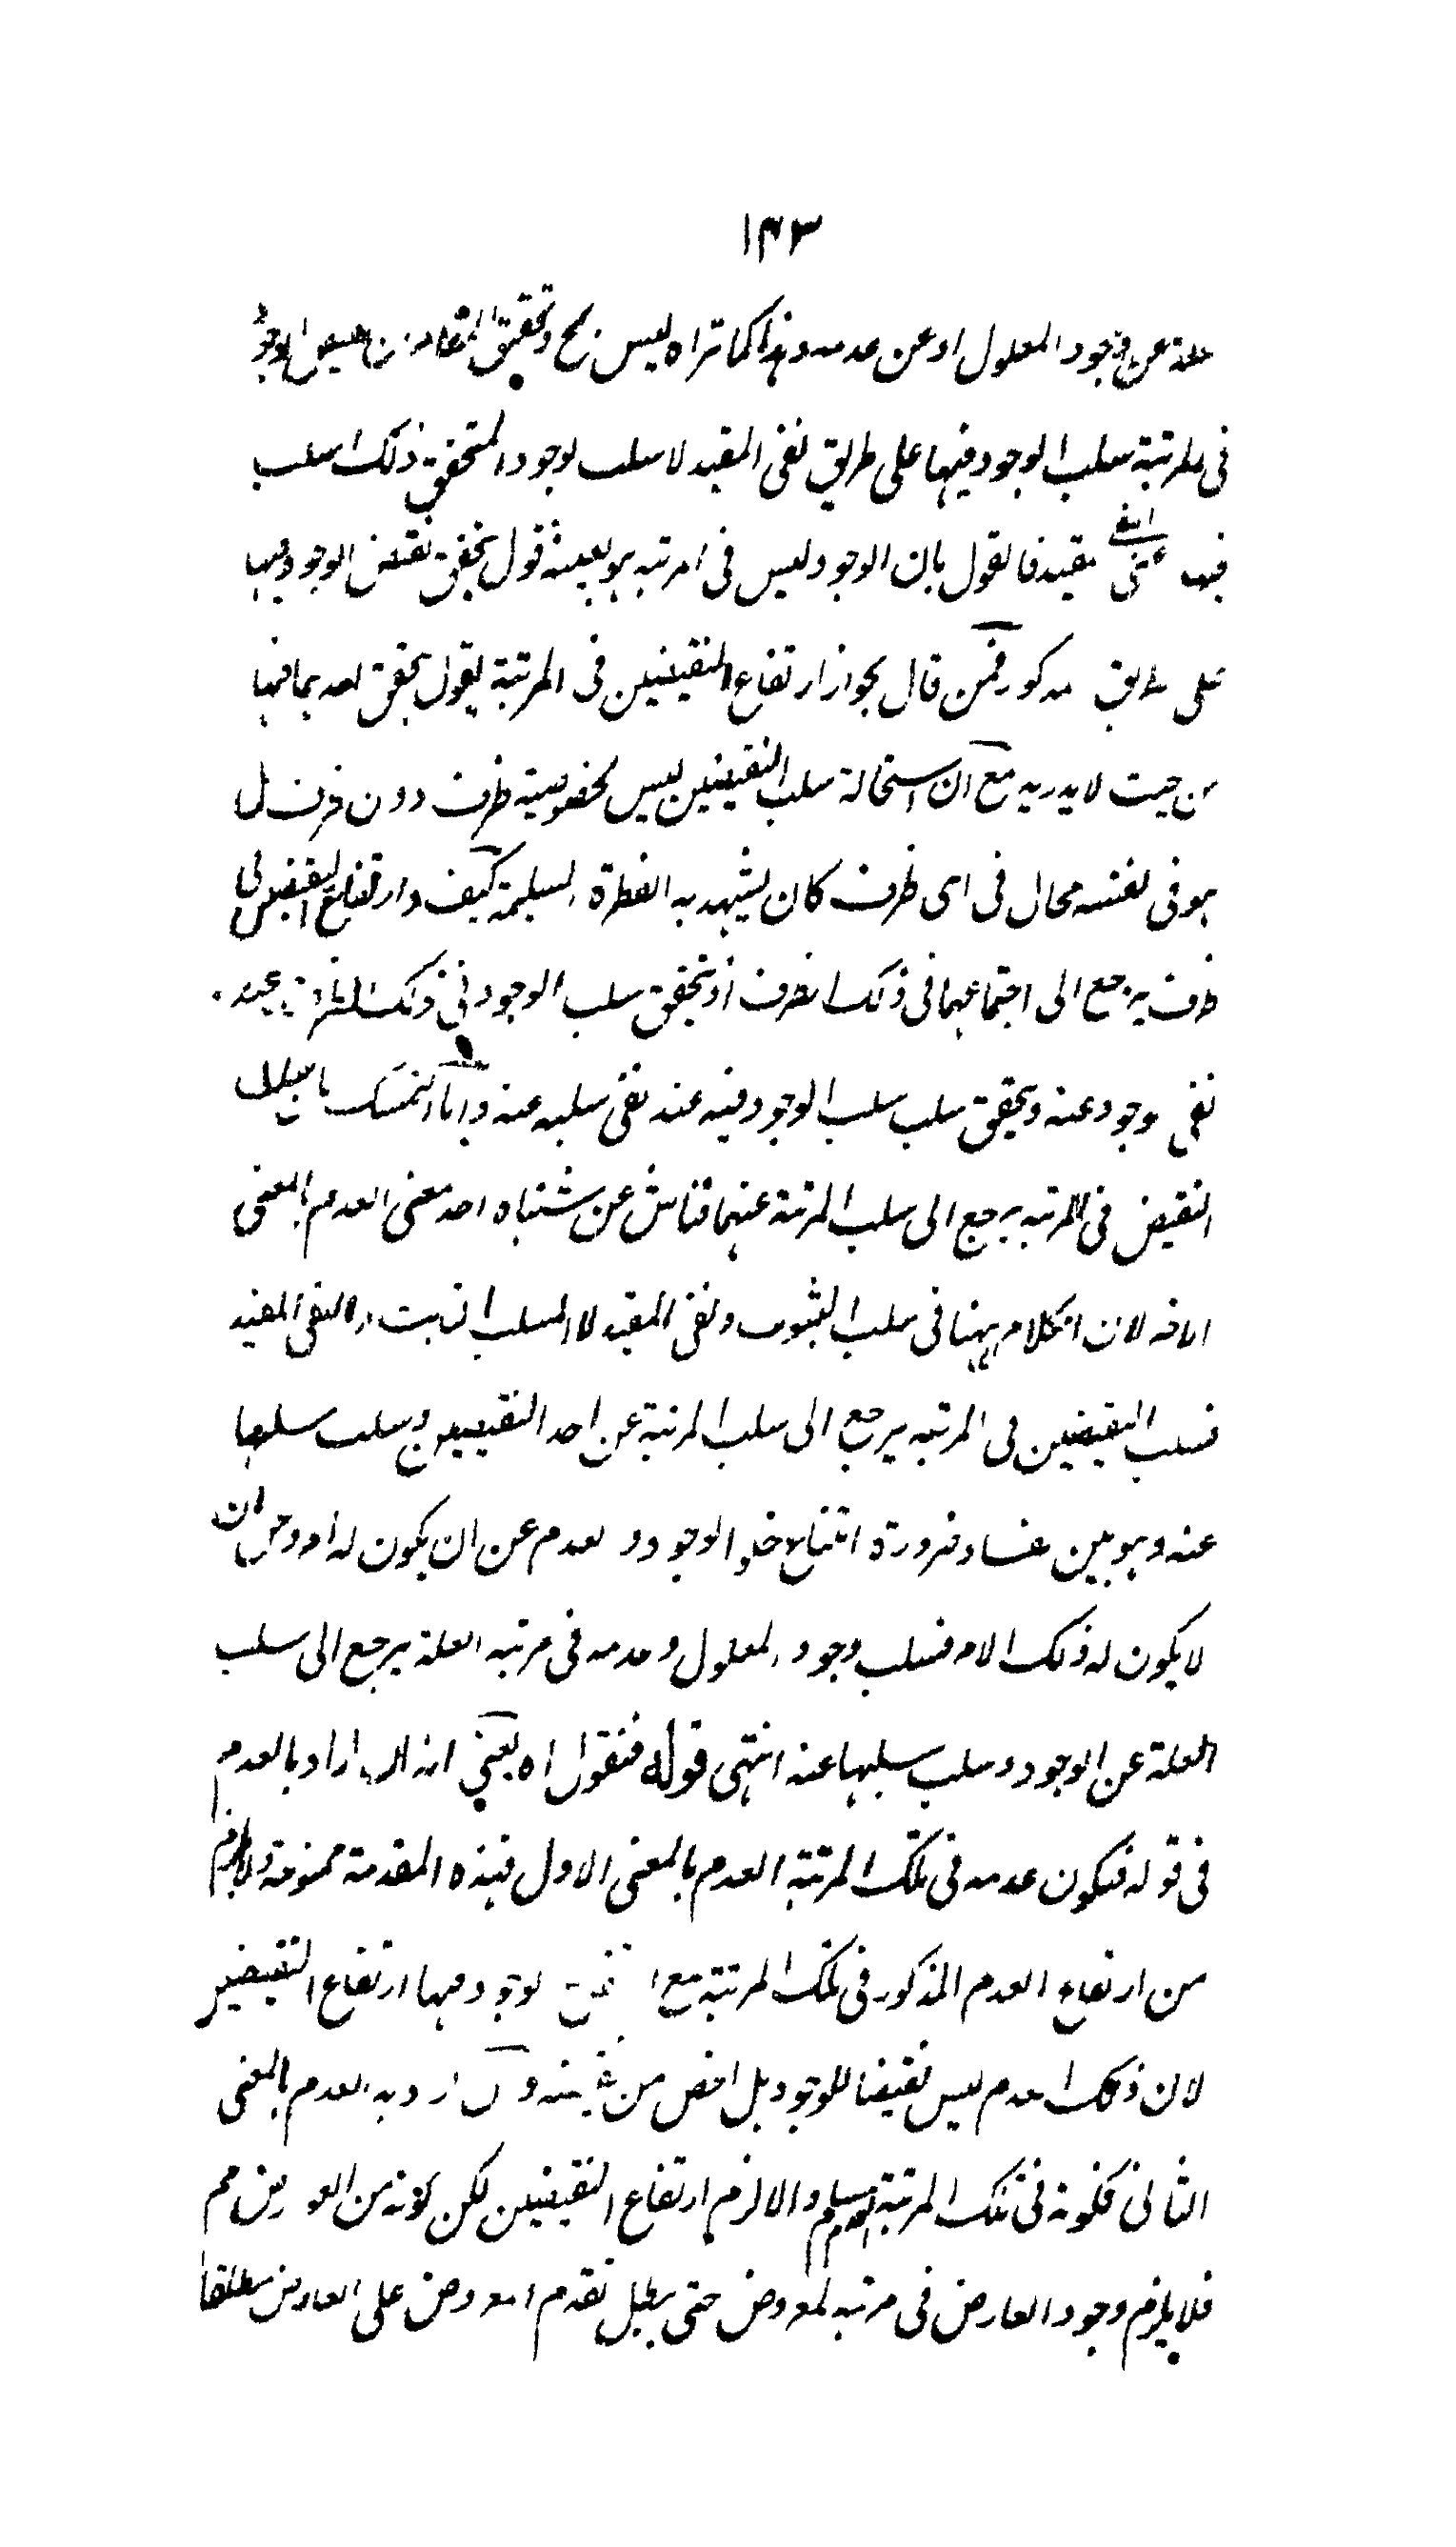 ١٤٣
علة عن وجود المعلول او عن عدمه وهذا كما تراه ليس بصحيح وتحقيق المقام ان نقيض الوجود
فى المرتبة سلب الوجود فيها على طريق نفى المقيد لا سلب الوجود المتحقق ذلك السلب
فيها اعنى النفى المقيد فالقول بان الوجود ليس فى المرتبة هو بعينه قول بتحقق نقيض الوجود فيها
على طريق مذكور فمن قال بجواز ارتفاع النقيضين فى المرتبة يقول بتحقق احدهما فيها
من حيث لا يدريه مع ان استحالة سلب النقيضين ليس لخصوصية ظرف دون ظرف بل
هو فى نفسه محال فى اى ظرف كان يشهد به الفطرة السليمة كيف وارتفاع النقيضين فى
ظرف يرجع الى اجتماعهما فى ذلك الظرف اذ يتحقق سلب الوجود فى ذلك الظرف عند
نفى وجود عنه ويتحقق سلب سلب الوجود فيه عند نفى سلبه عنه واما التمسك بان سلب
النقيض فى المرتبة يرجع الى سلب المرتبة عنهما فناش عن اشتباه احد معنى العدم بالمعنى
الاخر لان الكلام ههنا فى سلب الثبوت ونفى المقيد لا السلب الثابت والنفى المقيد
فسلب النقيضين فى المرتبة يرجع الى سلب المرتبة عن احد النقيضين وسلب سلبها
عنه وهو بين الفساد ضرورة امتناع خلو الوجود والعدم عن ان يكون له امر وعن ان
لا يكون له ذلك الامر فسلب وجود المعلول وعدمه فى مرتبة العلة يرجع الى سلب
العلة عن الوجود وسلب سلبها عنه انتهى قوله فنقول اه يعنى انه ان اراد بالعدم
فى قوله فيكون عدمه فى تلك المرتبة العدم بالمعنى الاول فهذه المقدمة ممنوعة ولا يلزم
من ارتفاع العدم المذكور فى تلك المرتبة مع الوجود فيها ارتفاع النقيضين
لان ذلك العدم ليس نقيضا للوجود بل اخص من نقيضه وان اراد به العدم بالمعنى
الثانى فكونه فى تلك المرتبة مسلم والا لزم ارتفاع النقيضين لكن كونه من العوارض مم
فلا يلزم وجود العارض فى مرتبة المعروض حتى يبطل تقدم المعروض على العارض مطلقا